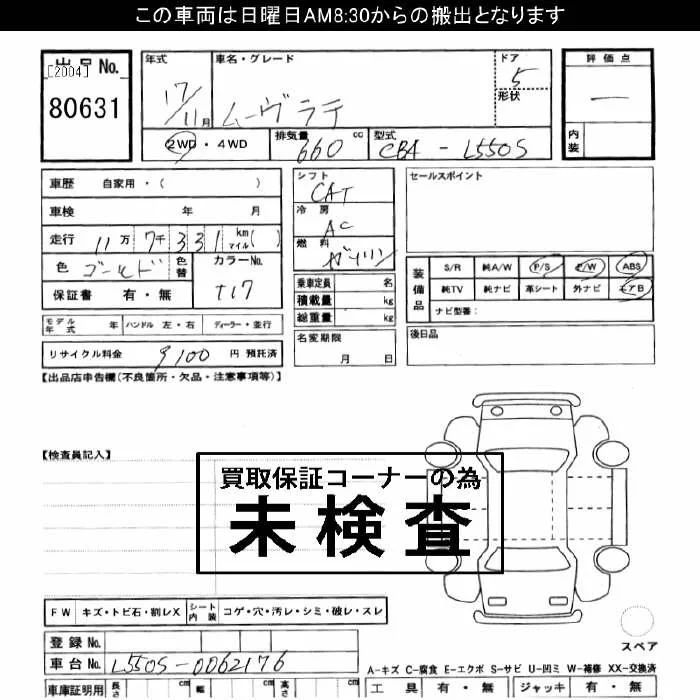 この車両は日曜日AM8:30からの搬出となります
出品No.
[2004]
80631
年式 車名・グレード ドア 評価点
17/11月 ムーヴラテ 5 形状 一
2WD・4WD 排気量 660 cc 型式 CBA - L550S 内装
車歴 自家用・( )
車検 年 月
走行 11万 7千 331 km マイル( )
色 ゴールド 色替 カラーNo.
保証書 有・無 T17
シフト CAT
冷房 AC
燃料 ガソリン
乗車定員 名
積載量 kg
総重量 kg
セールスポイント
装備品 S/R 純A/W P/S P/W ABS
純TV 純ナビ 革シート 外ナビ エアB
ナビ型番:
モデル年式 年 ハンドル 左・右 ディーラー・並行
名変期限 月 日
後日品
リサイクル料金 9100 円 預託済
【出品店申告欄(不良箇所・欠品・注意事項等)】
【検査員記入】
買取保証コーナーの為
未検査
FW キズ・トビ石・割レX シート内装 コゲ・穴・汚レ・シミ・破レ・スレ
登録No.
車台No. L550S-0062176
スペア
A-キズ C-腐食 E-エクボ S-サビ U-凹ミ W-補修 XX-交換済
車庫証明用 長さ cm 幅 cm 高さ cm
工具 有・無 ジャッキ 有・無